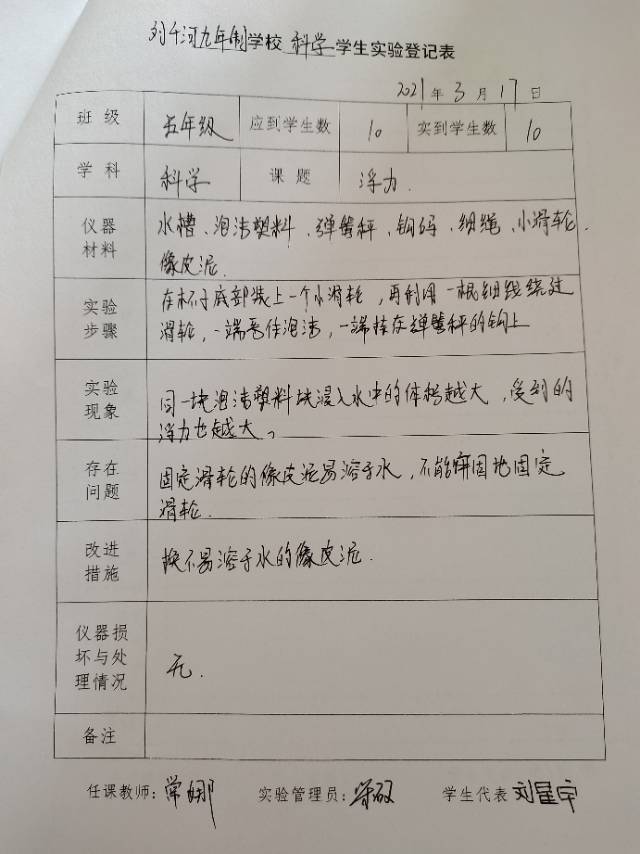 刘千河九年制学校 科学 学生实验登记表
2021年3月17日
班级 五年级 应到学生数 10 实到学生数 10
学科 科学 课题 浮力.
仪器材料 水槽、泡沫塑料、弹簧秤、钩码、细绳、小滑轮.
橡皮泥.
实验步骤 在杯子底部装上一个小滑轮,再利用一根细线绕过
滑轮,一端系住泡沫,一端挂在弹簧秤的钩上
实验现象 同一块泡沫塑料块浸入水中的体积越大,受到的
浮力也越大。
存在问题 固定滑轮的橡皮泥易溶于水,不能牢固地固定
滑轮.
改进措施 换不易溶于水的橡皮泥.
仪器损坏与处理情况 无.
备注
任课教师:常娜 实验管理员: 学生代表 刘星宇